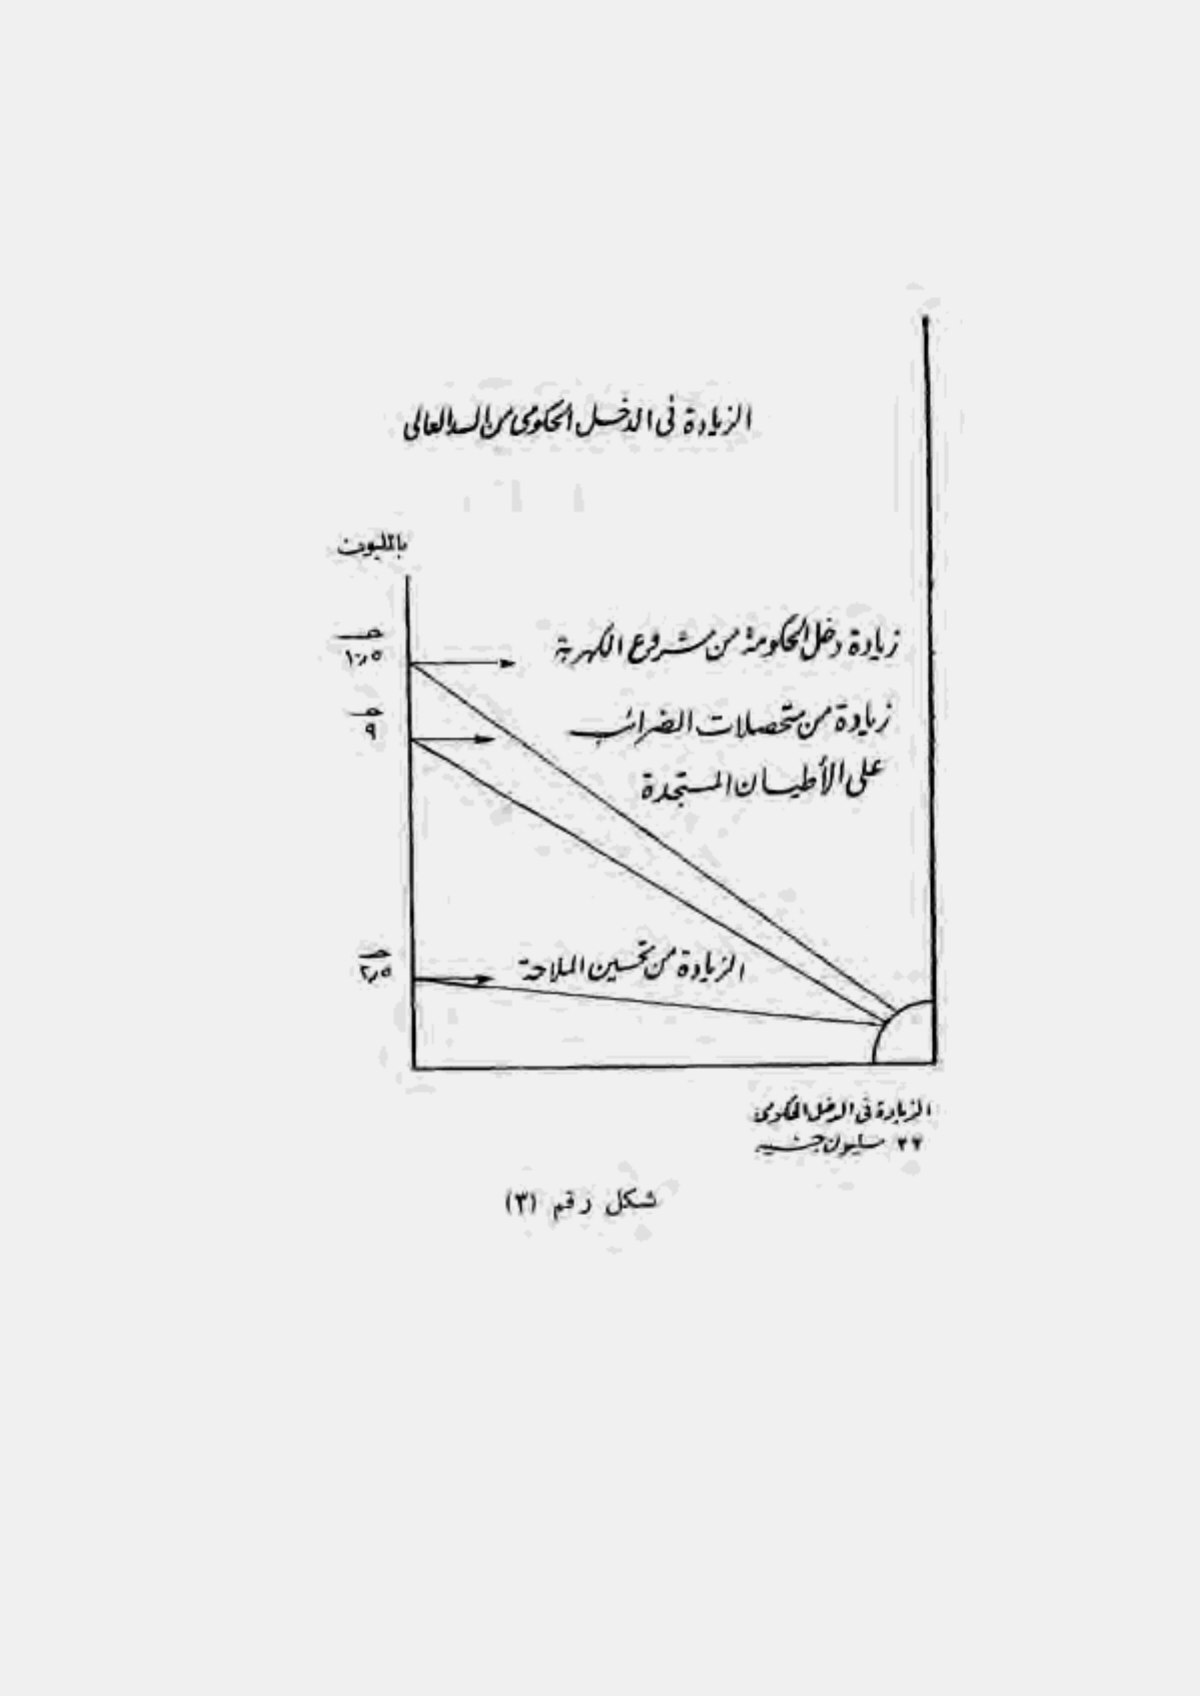 الزيادة فى الدخل الحكومى من السد العالى
بالمليون
جـ
١٠٫٥
زيادة دخل الحكومة من مشروع الكهربة
جـ
٩
زيادة من متحصلات الضرائب
على الأطيان المستجدة
جـ
٢٫٥
الزيادة من تحسين الملاحة
الزيادة فى الدخل الحكومى
٢٢ مليون جنيه
شكل رقم (٣)